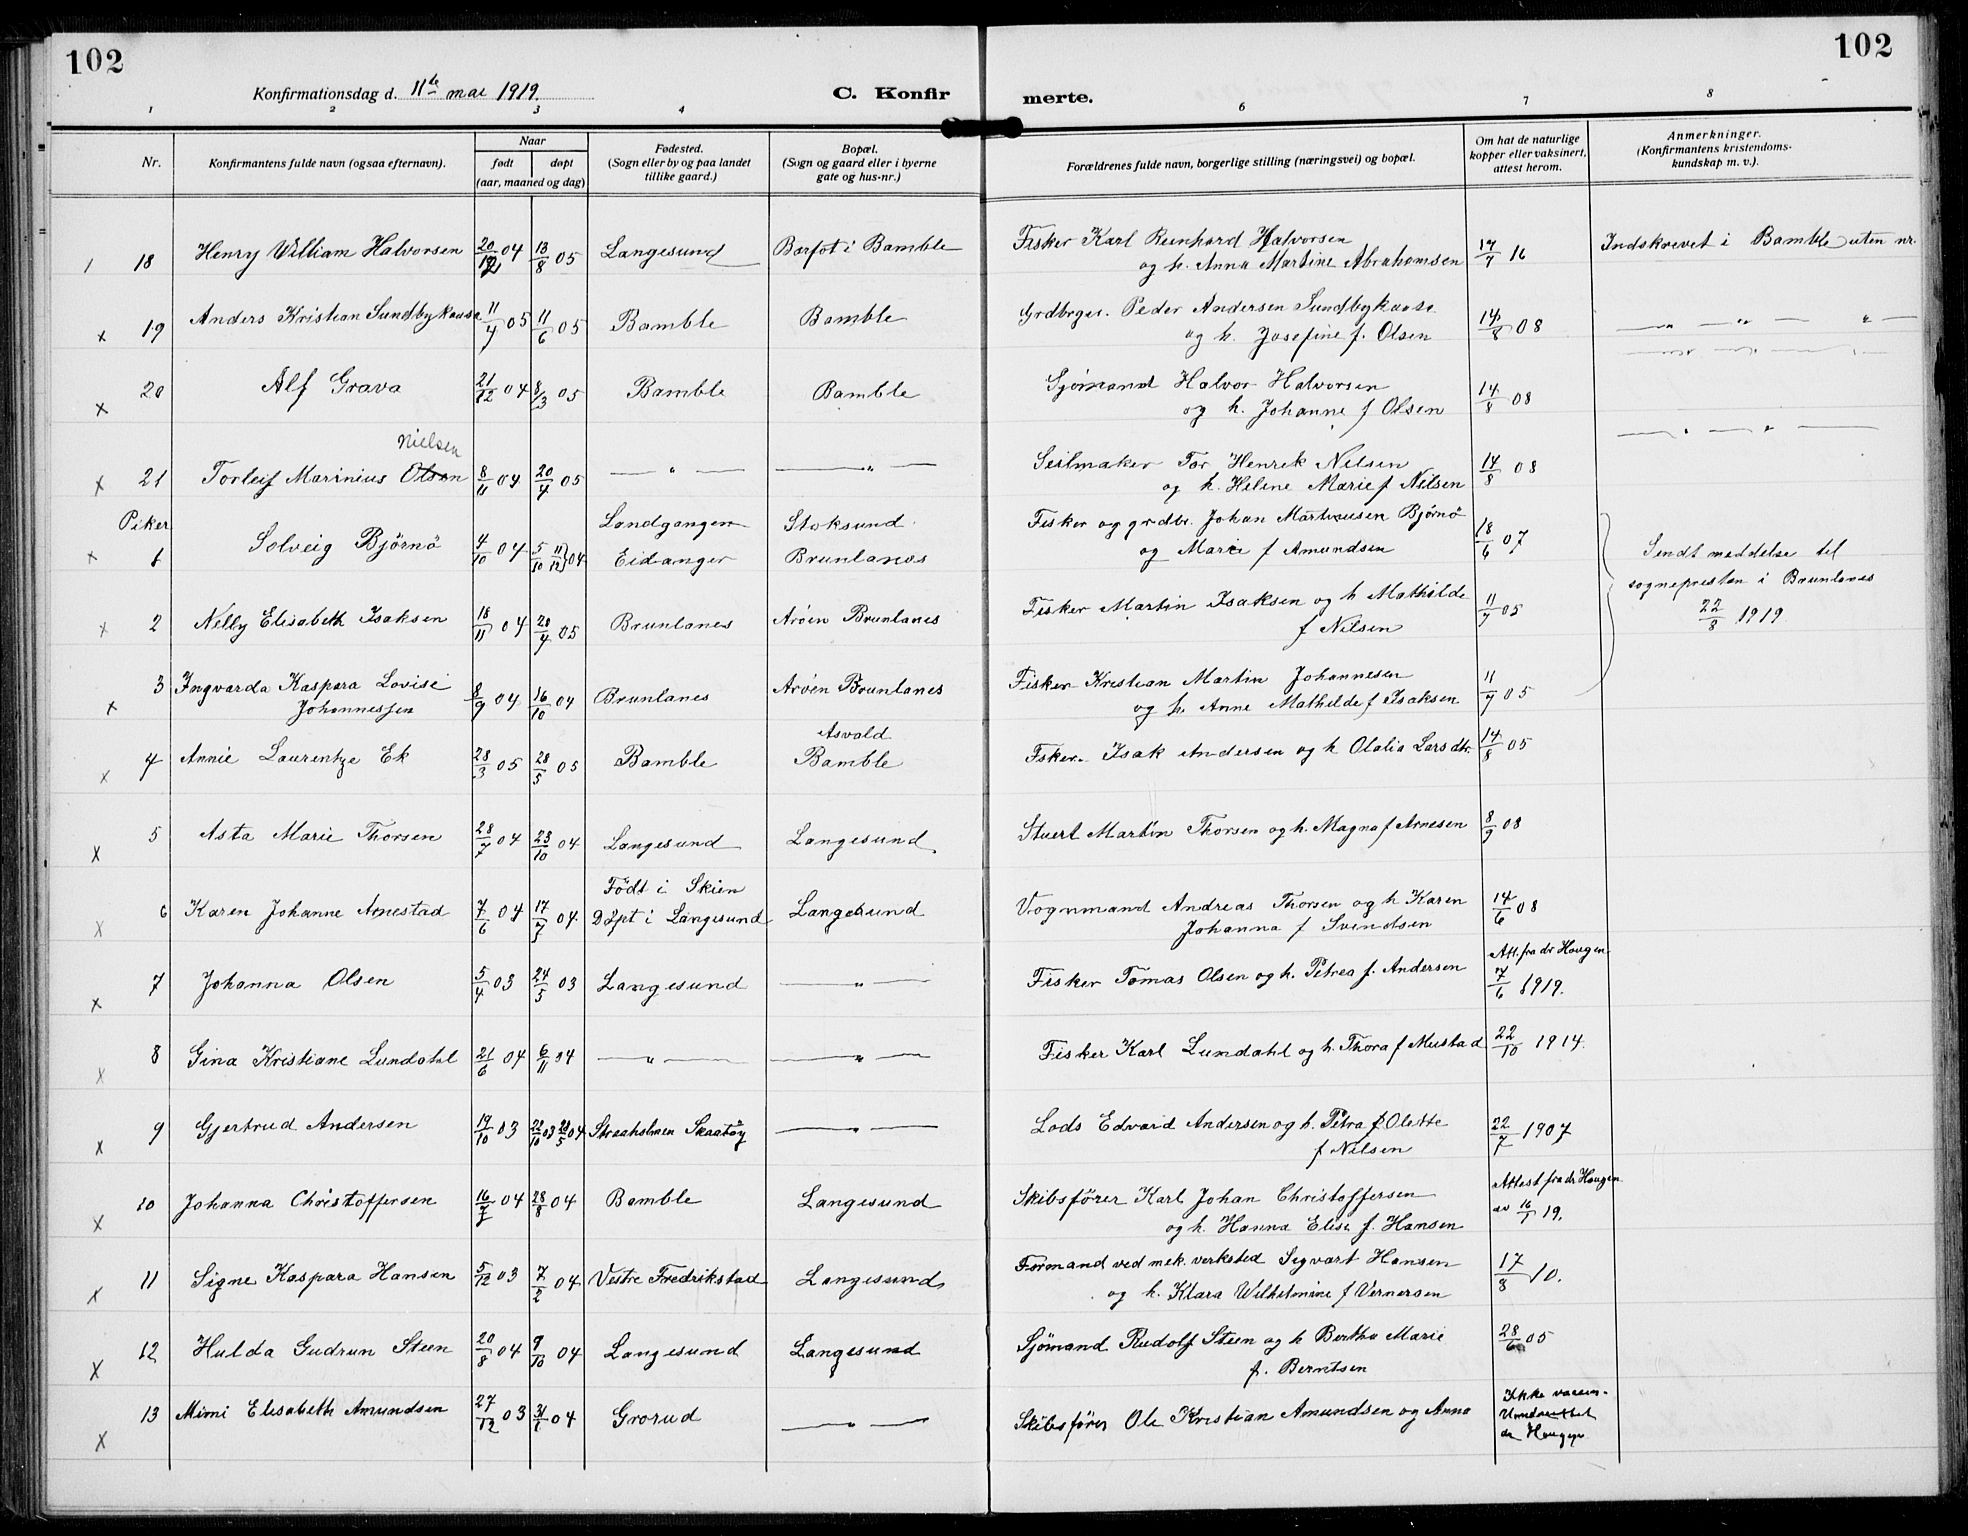 102
102
Konfirmationsdag d. 11te mai 1919.
C. Konfir
merte.
1 2 3 4 6 7 8
Nr.
Konfirmantens fulde navn (ogsaa efternavn).
Naar
født
døpt
(aar, maaned og dag)
Fødested.
(Sogn eller by og paa landet
tillike gaard.)
Bopæl.
(Sogn og gaard eller i byerne
gate og hus-nr.)
Forældrenes fulde navn, borgerlige stilling (næringsvei) og bopæl.
Om hat de naturlige
kopper eller vaksinert,
attest herom.
Anmerkninger.
(Konfirmantens kristendoms-
kundskap m. v.).
1 18 Henry William Halvorsen 20/12 04 13/8 05 Langesund Barfot i Bamble Fisker Karl Reinhard Halvorsen 17/7 16 Indskrevet i Bamble uten nr.
og h. Anna Martine Abrahamsen
x 19 Anders Kristian Sundbykaasa 11/4 05 11/6 05 Bamble Bamble Grdbrger. Peder Andersen Sundbykaasa 14/8 08 — " — " — " —
og h. Josefine f. Olsen
x 20 Alf Grava 21/12 04 8/3 05 Bamble Bamble Sjømand Halvor Halvorsen 14/8 08 — " — " —
og h. Johanne f Olsen
Nielsen
x 21 Torleif Marinius Olsen 8/11 04 20/4 05 — " — — " — Seilmaker Tor Henrik Nilsen 14/8 08 — " — " —
og h. Helene Marie f Nilsen
Piker
x 1 Solveig Bjørnø 4/10 04 5/10 11/12 04 Landgangen Eidanger Stoksund Brunlanes Fisker og grdbr. Johan Martinusen Bjørnø 18/6 07
og Marie f Amundsen
Sendt meddelse til
sognepresten i Brunlanes
22/8 1919
x 2 Nelly Elisabeth Isaksen 18/11 04 20/4 05 Brunlanes Arøen Brunlanes Fisker Martin Isaksen og h Mathilde 11/7 05
f Nilsen
x 3 Ingvarda Kaspara Lovise 8/9 04 16/10 04 Brunlanes Arøen Brunlanes Fisker Kristian Martin Johannesen 11/7 05
Johannessen og h. Anne Mathilde f Isaksen
Asvald
x 4 Annie Laurentze Ek 28/3 05 28/5 05 Bamble Bamble Fsker. Isak Andersen og h Olalia Larsdtr. 14/8 05
x 5 Asta Marie Thorsen 28/7 04 23/10 04 Langesund Langesund Stuert Martin Thorsen og h. Magna f Arnesen 8/9 08
Født i Skien
x 6 Karen Johanne Arnestad 7/6 04 17/7 04 Døpt i Langesund Langesund Vognmand Andreas Thorsen og h Karen 14/6 08
Johanna f Svendsen
Att. fra dr Haugen
x 7 Johanna Olsen 5/4 03 24/5 03 Langesund — " — Fisker Tomas Olsen og h. Petrea f. Andersen 7/6 1919.
x 8 Gina Kristiane Lundahl 21/6 04 6/11 04 — " — — " — Fisker Karl Lundahl og h. Thora f Mustad 22/10 1914.
x 9 Gjertrud Andersen 19/10 03 22/10 03 20/5 04 Straaholmen Skaatøy — " — Lods Edvard Andersen og h. Petra f Olette 22/7 1907
f Nilsen
x 10 Johanna Christoffersen 16/7 04 28/8 04 Bamble Langesund Skibsfører Karl Johan Christoffersen Attest fra dr Haugen
og h. Hanna Elise f. Hansen av 16/1 19.
x 11 Signe Kaspara Hansen 5/12 03 7/2 04 Vestre Fredrikstad Langesund Formand ved mek. verksted Sigvart Hansen 17/8 10.
og h. Klara Wilhelmine f Vernersen
x 12 Hulda Gudrun Steen 20/8 04 9/10 04 Langesund Langesund Sjømand Rudolf Steen og h Bertha Marie 28/6 05
f. Berntsen
x 13 Mimi Elisabeth Amundsen 27/12 03 31/1 04 Grorud — " — Skibsfører Ole Kristian Amundsen og Anna Ikke vaccin.
dr Haugen